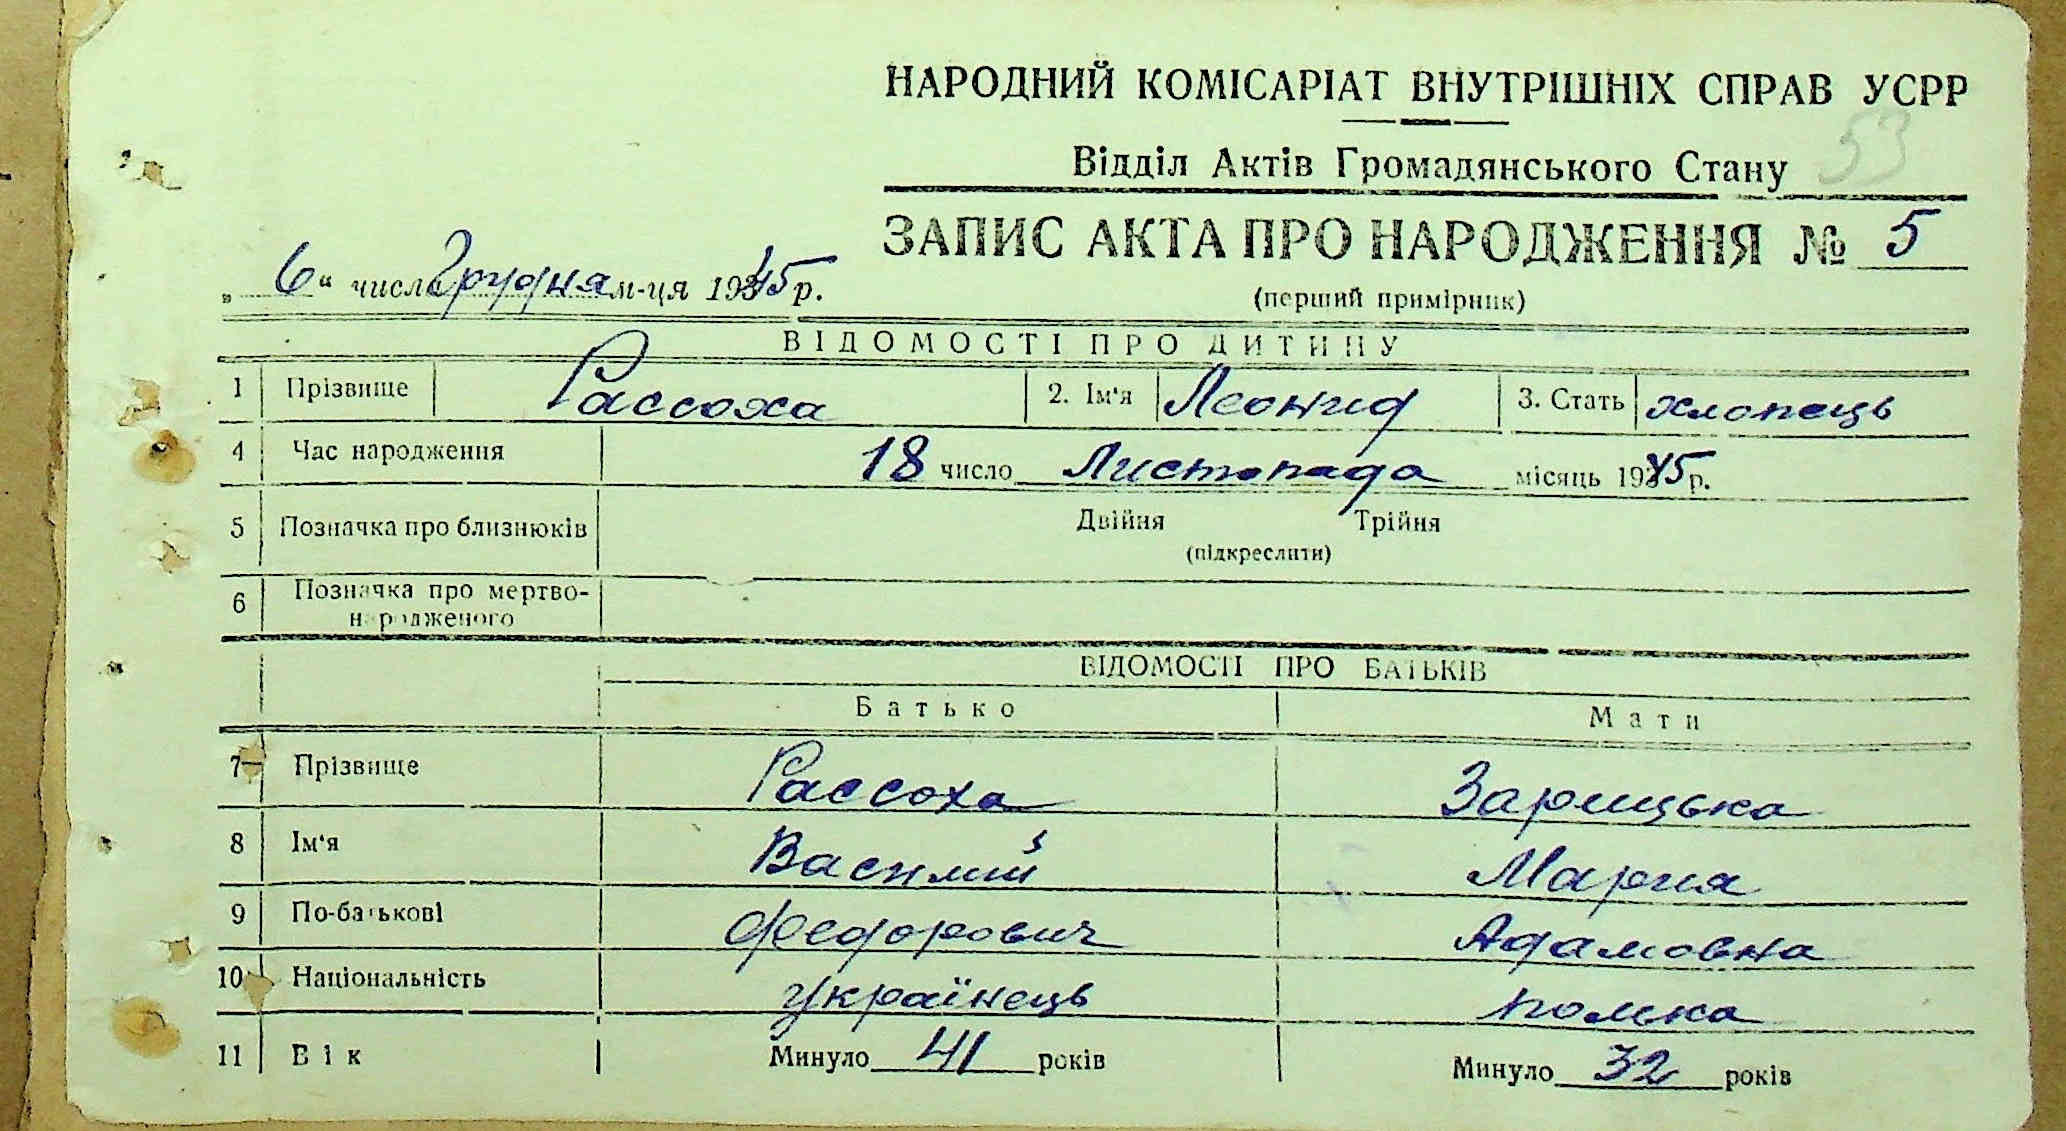 НАРОДНИЙ КОМІСАРІАТ ВНУТРІШНІХ СПРАВ УСРР
Відділ Актів Громадянського Стану 53
ЗАПИС АКТА ПРО НАРОДЖЕННЯ № 5
„6“ числа Грудня м-ця 1945 р.
(перший примірник)
ВІДОМОСТІ ПРО ДИТИНУ
1 Прізвище Рассоха 2. Ім‘я Леонид 3. Стать хлопець
4 Час народження 18 число Листопада місяць 1945 р.
5 Позначка про близнюків Двійня Трійня
(підкреслити)
6 Позначка про мертво-
народженого
ВІДОМОСТІ ПРО БАТЬКІВ
Батько Мати
7 Прізвище Рассоха Зарицька
8 Ім‘я Василий Мария
9 По-батькові Федорович Адамовна
10 Національність Українець полька
11 Вік Минуло 41 років Минуло 32 років